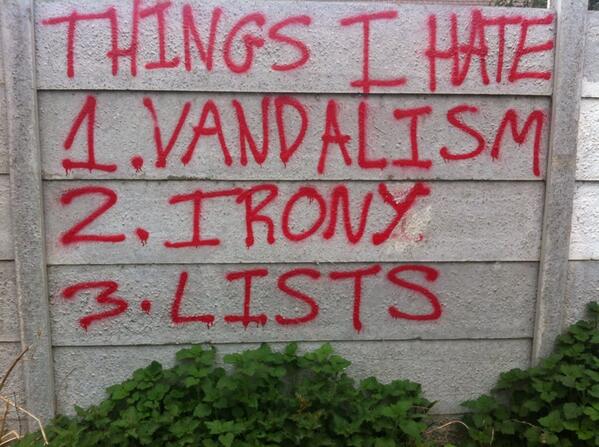 THINGS I HATE
1. VANDALISM
2. IRONY
3. LISTS